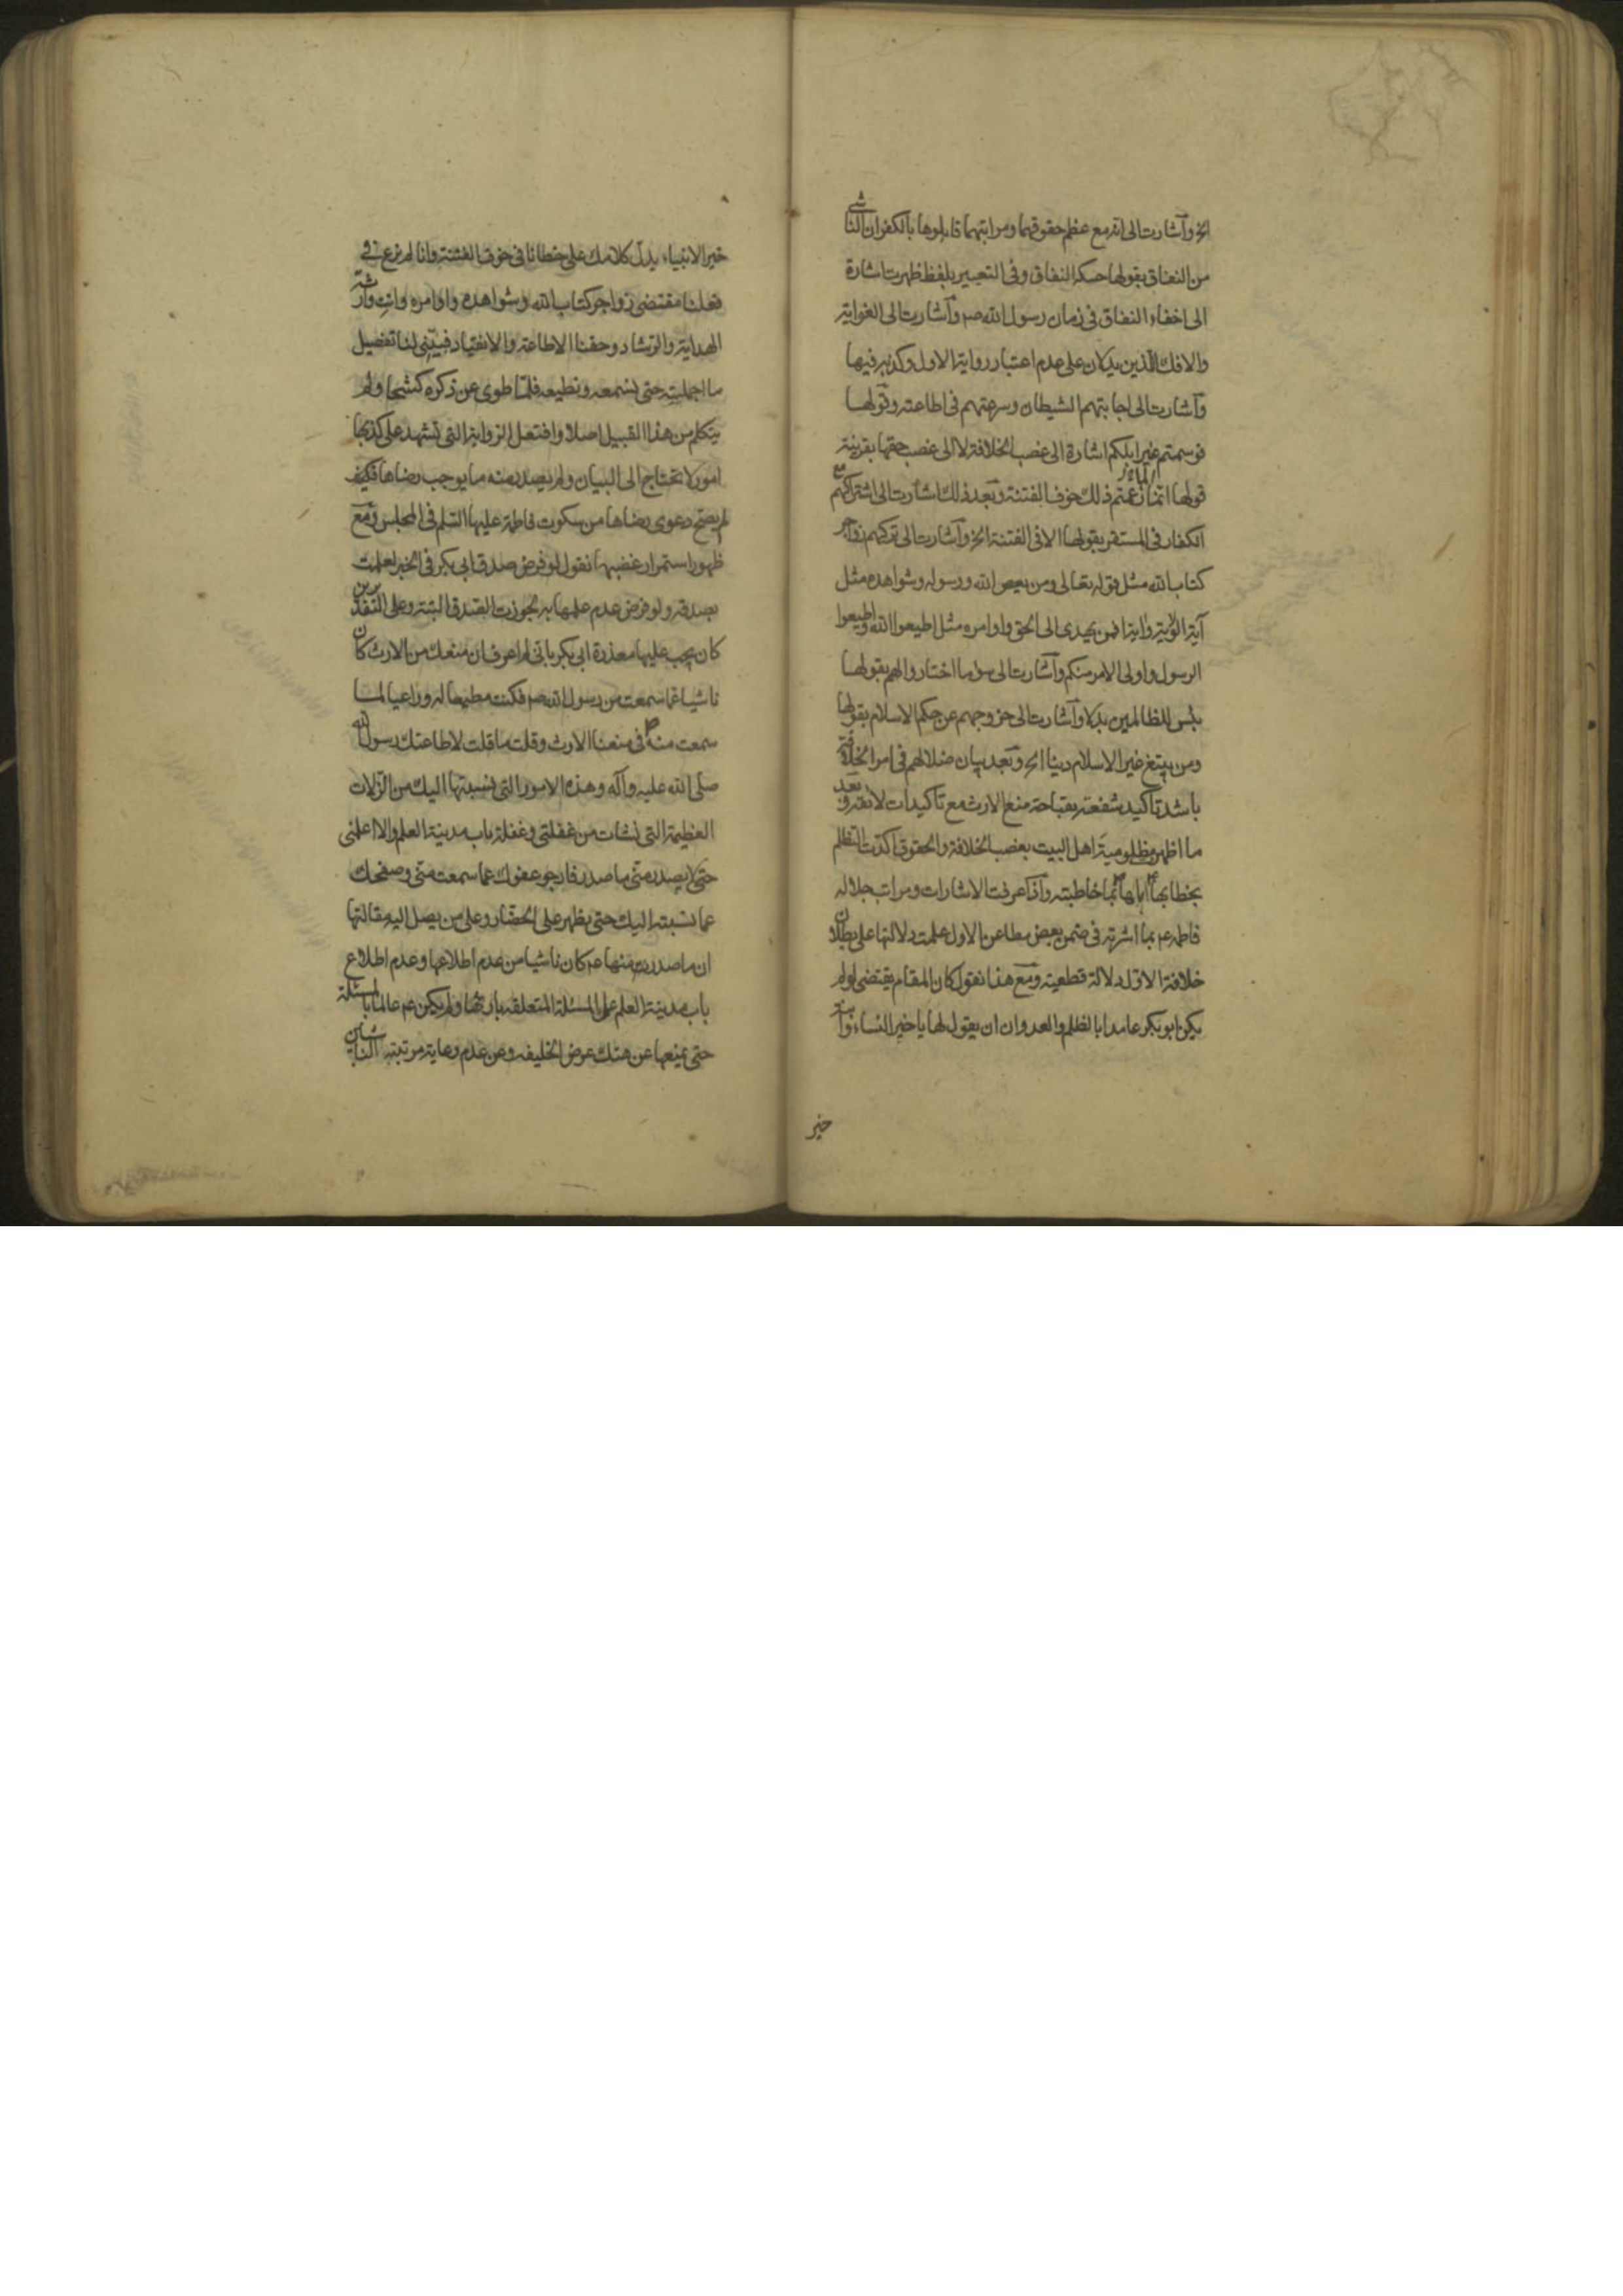 الخ وآشارت الى انه مع عظم حقوقهما ومراتبهما قابلوها بالكفران الناشى
من النفاق بقولها حسكة النفاق وفى التعبير بلفظ ظهرت اشارة
الى اخفاء النفاق فى زمان رسول الله صم وآشارت الى الغواية
والافك الذين يدلان على عدم اعتبار رواية الاول وكذبه فيها
وآشارت الى اجابتهم الشيطان وسرعتهم فى اطاعته وقولها
فوسمتم غير ابلكم اشارة الى غصب الخلافة لا الى غصب حقها بقرينة
قولها انما زعمتم ذلك خوف الفتنة وبعد ذلك اشارت الى اشتراكهم مع
الكفار فى المستقر بقولها الا فى الفتنة الخ وآشارت الى تركهم زواجر
كتاب الله مثل قوله تعالى ومن يعص الله ورسوله وشواهده مثل
آية الولاية وآية افمن يهدى الى الحق واوامره مثل اطيعوا الله واطيعوا
الرسول واولى الامر منكم وآشارت الى سوء ما اختاروا لهم بقولها
بئس للظالمين بدلا وآشارت الى خروجهم عن حكم الاسلام بقولها
ومن يبتغ غير الاسلام دينا الخ وبعد بيان ضلالهم فى امر الخلافة
باشد تاكيد شفعته بقباحة منع الارث مع تاكيدات لائقة وبعد
ما اظهر مظلومية اهل البيت بغصب الخلافة والحقوق اكدت التظلم
بخطابها اباها بما خاطبته واذا عرفت الاشارات ومراتب جلالة
فاطمه عم بما اشرته فى ضمن بعض مطاعن الاول علمت دلالتها على بطلان
خلافة الاول دلالة قطعية ومع هذا نقول كان المقام يقتضى لو لم
يكن ابو بكر عامدا بالظلم والعدوان ان يقول لها يا خير النساء وابنة
خير
خير الانبياء يدل كلامك على خطائنا فى خوف الفتنة وانا لم نرع فى
فعلنا مقتضى زواجر كتاب الله وشواهده واوامره وانت وارثة
الهداية والرشاد وحقنا الاطاعة والانقياد فبينى لنا تفصيل
ما اجملته حتى نسمعه ونطيعه فلما طوى عن ذكره كشحا ولم
يتكلم من هذا القبيل اصلا وافتعل الرواية التى تشهد على كذبها
امور لا تحتاج الى البيان ولم يصدر منه ما يوجب رضاها فكيف
لم يصح دعوى رضاها من سكوت فاطمة عليها السلم فى المجلس ومع
ظهور استمرار غضبها نقول لو فرض صدق ابى بكر فى الخبر لعلمت
بصدقه ولو فرض عدم علمها به لجوزت الصدق البتة وعلى التقديرين
كان يجب عليها معذرة ابى بكر بانى لم اعرف ان منعك من الارث كان
ناشيا عما سمعت من رسول الله صم فكنت مطيعا له وراعيا لما
سمعت منه فى منعنا الارث وقلت ما قلت لاطاعتك رسول الله
صلى الله عليه وآله وهذه الامور التى نسبتها اليك من الزلات
العظيمة التى نشات من غفلتى وغفلة باب مدينة العلم والا اعلمنى
حتى لا يصدر منى ما صدر فارجو عفوك عما سمعت منى وصفحك
عما نسبته اليك حتى يظهر على الحضار وعلى من يصل اليه مقالتها
ان ما صدرت منها عم كان ناشيا من عدم اطلاعها وعدم اطلاع
باب مدينة العلم على المسئلة المتعلقه بارثها ولم يكن عم عالما بالمسئلة
حتى يمنعها عن هتك عرض الخليفه وعن عدم رعاية مرتبته الناشيين